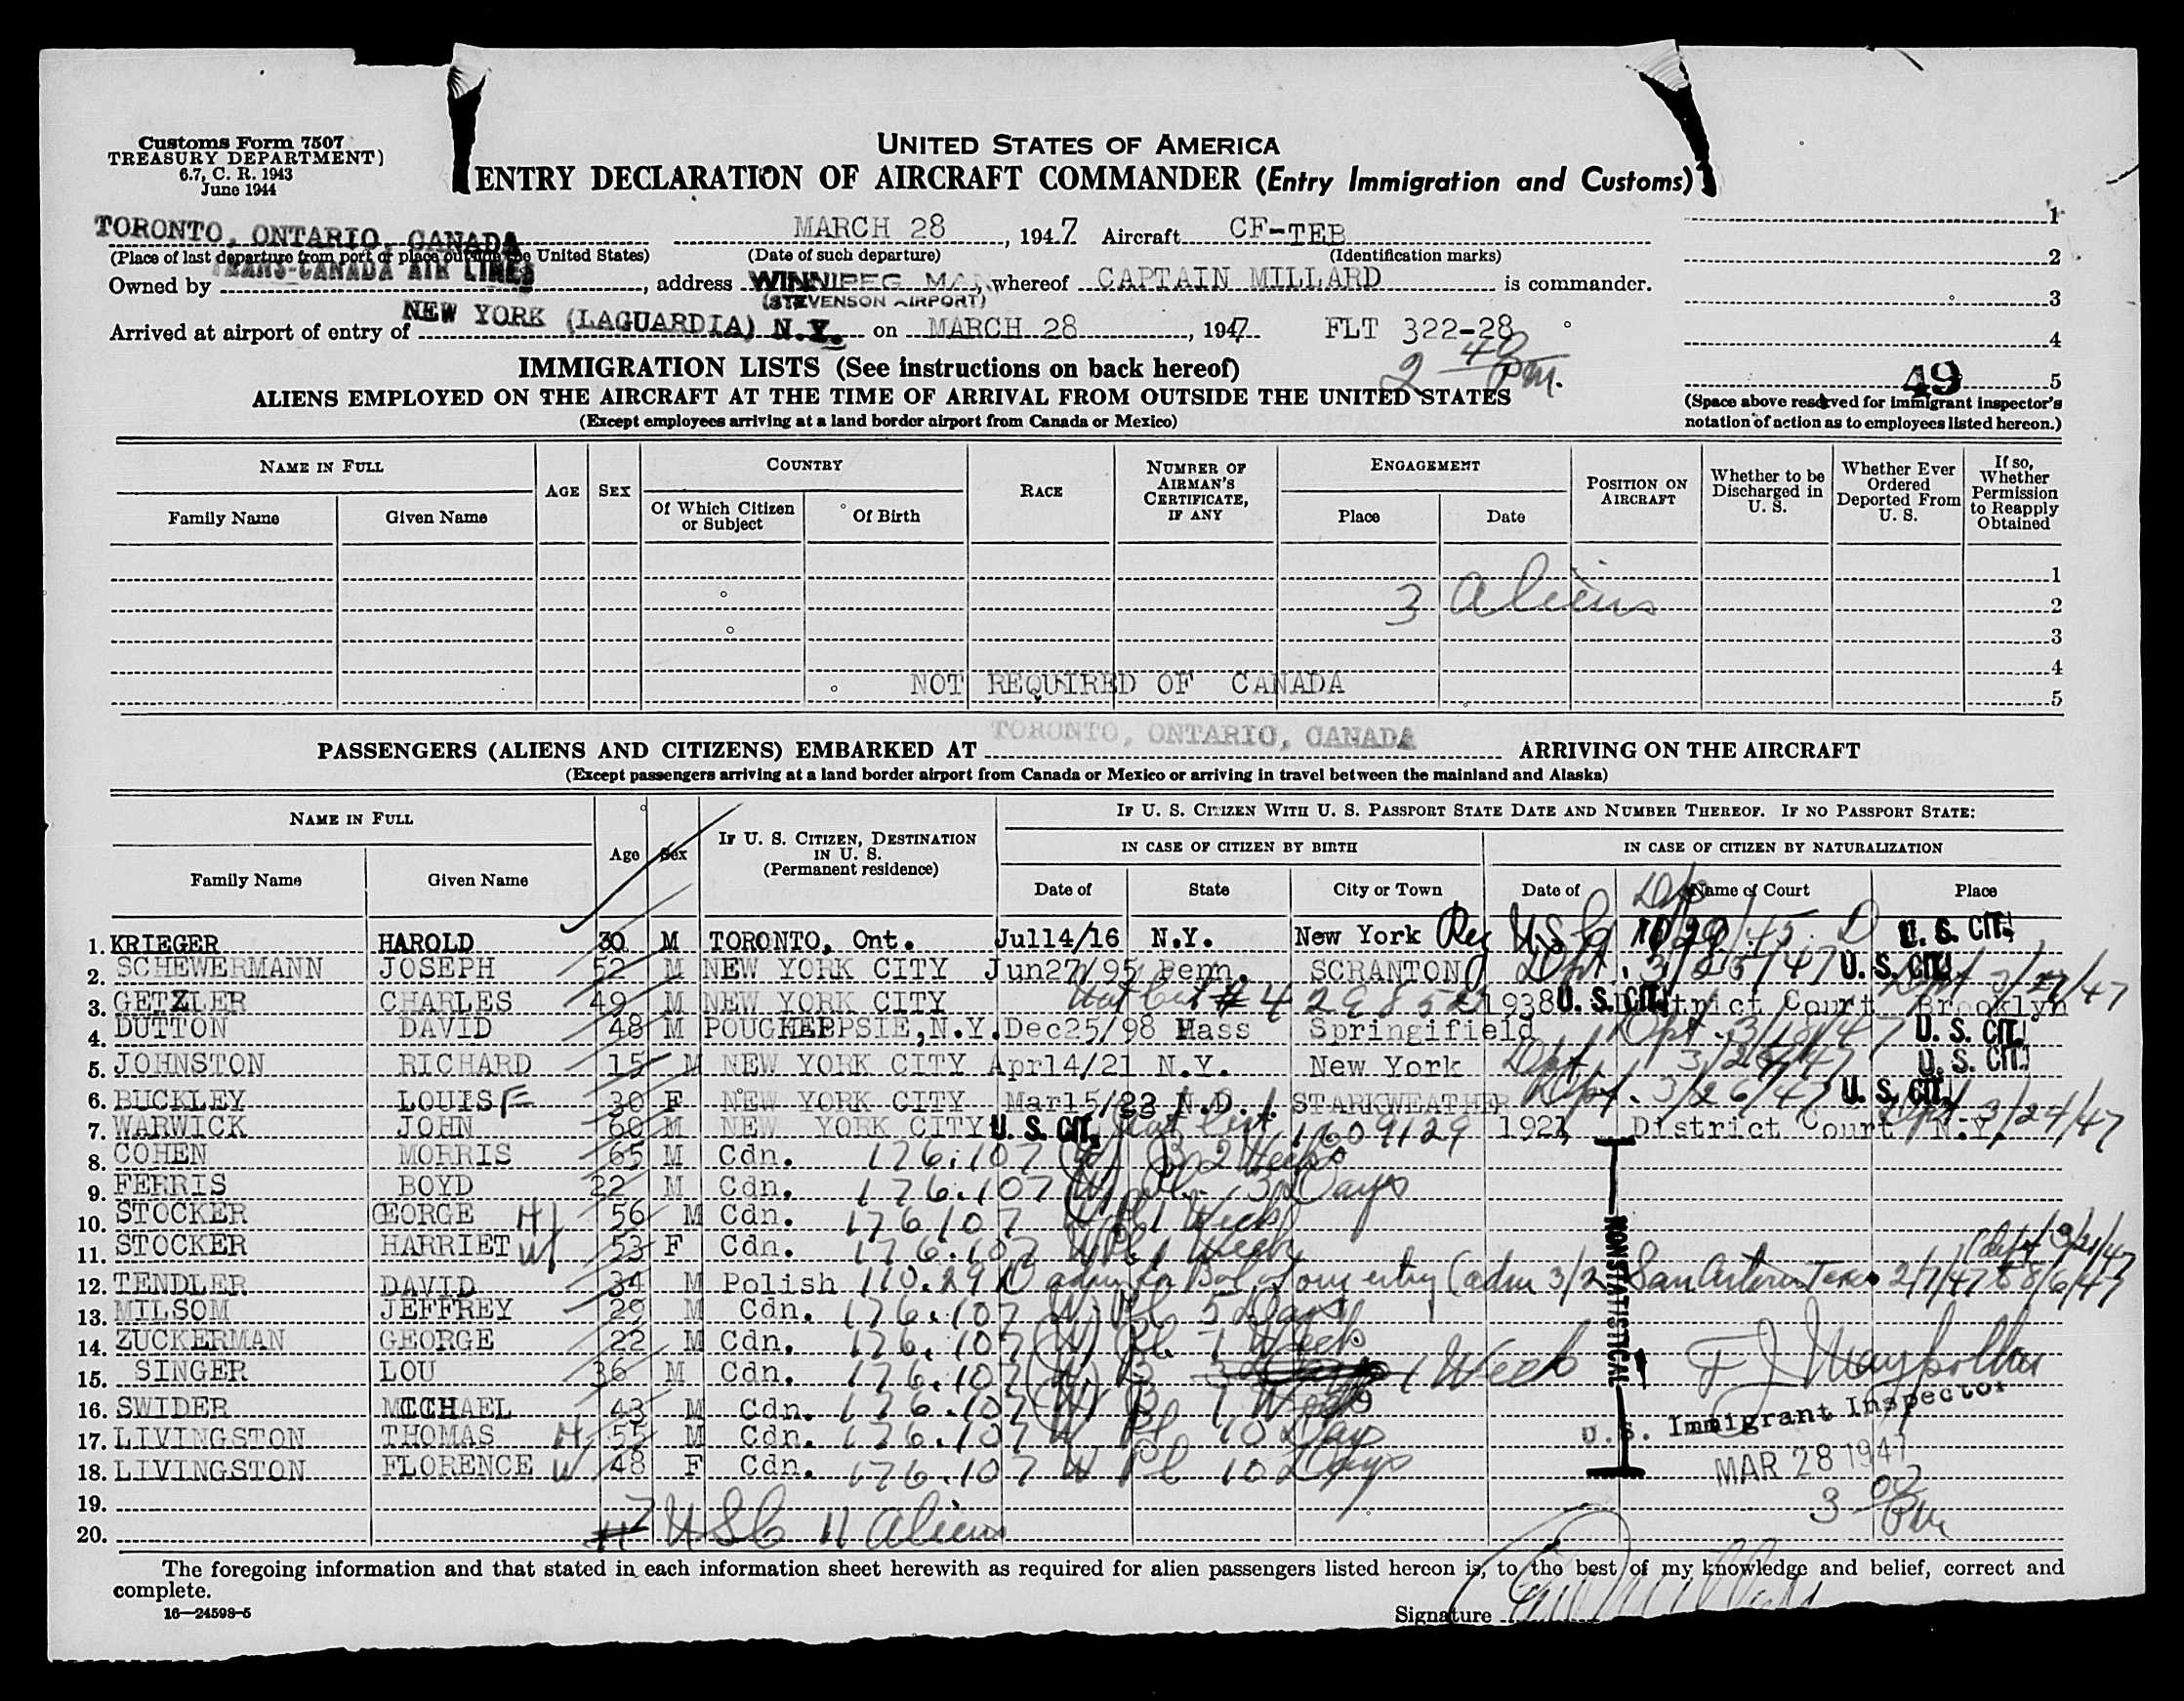 Customs Form 7507
TREASURY DEPARTMENT)
6.7, C. R. 1943
June 1944
UNITED STATES OF AMERICA
ENTRY DECLARATION OF AIRCRAFT COMMANDER (Entry Immigration and Customs)
TORONTO, ONTARIO, CANADA MARCH 28, 1947 Aircraft CF-TEB
(Place of last departure from port or place outside the United States) (Date of such departure) (Identification marks)
Owned by TRANS-CANADA AIR LINES, address WINNIPEG MAN, whereof CAPTAIN MILLARD is commander.
(STEVENSON AIRPORT)
Arrived at airport of entry of NEW YORK (LAGUARDIA) N.Y. on MARCH 28, 1947 FLT 322-28
2 40 pm.
1
2
3
4
49 5
(Space above reserved for immigrant inspector's notation of action as to employees listed hereon.)
IMMIGRATION LISTS (See instructions on back hereof)
ALIENS EMPLOYED ON THE AIRCRAFT AT THE TIME OF ARRIVAL FROM OUTSIDE THE UNITED STATES
(Except employees arriving at a land border airport from Canada or Mexico)
NAME IN FULL AGE SEX COUNTRY RACE NUMBER OF AIRMAN'S CERTIFICATE, IF ANY ENGAGEMENT POSITION ON AIRCRAFT Whether to be Discharged in U. S. Whether Ever Ordered Deported From U. S. If so, Whether Permission to Reapply Obtained
Family Name Given Name Of Which Citizen or Subject Of Birth Place Date
1
3 aliens 2
3
4
NOT REQUIRED OF CANADA 5
TORONTO, ONTARIO, CANADA
PASSENGERS (ALIENS AND CITIZENS) EMBARKED AT ARRIVING ON THE AIRCRAFT
(Except passengers arriving at a land border airport from Canada or Mexico or arriving in travel between the mainland and Alaska)
NAME IN FULL Age Sex IF U. S. CITIZEN, DESTINATION IN U. S. (Permanent residence) IF U. S. CITIZEN WITH U. S. PASSPORT STATE DATE AND NUMBER THEREOF. IF NO PASSPORT STATE:
IN CASE OF CITIZEN BY BIRTH IN CASE OF CITIZEN BY NATURALIZATION
Family Name Given Name Date of State City or Town Date of Name of Court Place
1. KRIEGER HAROLD 30 M TORONTO, Ont. Jul14/16 N.Y. New York U. S. CIT.
2. SCHEWERMANN JOSEPH 52 M NEW YORK CITY Jun27/95 Penn. SCRANTON U. S. CIT.
3. GETZLER CHARLES 49 M NEW YORK CITY 1938 U. S. CIT. District Court Brooklyn
4. DUTTON DAVID 48 M POUGHEPPSIE, N.Y. Dec25/98 Mass Springifield Dept. 3/18/47 U. S. CIT.
5. JOHNSTON RICHARD 15 M NEW YORK CITY Apr14/21 N.Y. New York U. S. CIT.
6. BUCKLEY LOUISE 30 F NEW YORK CITY Mar15/23 N.D. STARKWEATHER Dept. 3/26/47 U. S. CIT.
7. WARWICK JOHN 60 M NEW YORK CITY U. S. CIT. 1609129 1921 District Court N.Y. 3/24/47
8. COHEN MORRIS 65 M Cdn. 176.107 (W) B 2 Weeks
9. FERRIS BOYD 22 M Cdn. 176.107 (W) Pl. 3 Days
10. STOCKER GEORGE H 56 M Cdn. 176107 W Pl 1 Week
11. STOCKER HARRIET W 53 F Cdn. 176.107 W Pl 1 Week
12. TENDLER DAVID 34 M Polish 110.291 San Antonio Texas 2/7/47 to 8/6/47
13. MILSOM JEFFREY 29 M Cdn. 176.107 W Pl 5 Days
14. ZUCKERMAN GEORGE 22 M Cdn. 176.107 (W) Pl. 1 Week
15. SINGER LOU 36 M Cdn. 176.107 (W) B 1 Week
16. SWIDER MICHAEL 43 M Cdn. 176.107 (W) B 1 Week
17. LIVINGSTON THOMAS H 55 M Cdn. 176.107 W Pl 10 Days
18. LIVINGSTON FLORENCE W 48 F Cdn. 176.107 W Pl 10 Days
19.
20. 7 USC 11 aliens
NONSTATISTICAL
U.S. Immigrant Inspector
MAR 28 1947
3 00 Pm
The foregoing information and that stated in each information sheet herewith as required for alien passengers listed hereon is, to the best of my knowledge and belief, correct and
complete.
16—24598-5
Signature